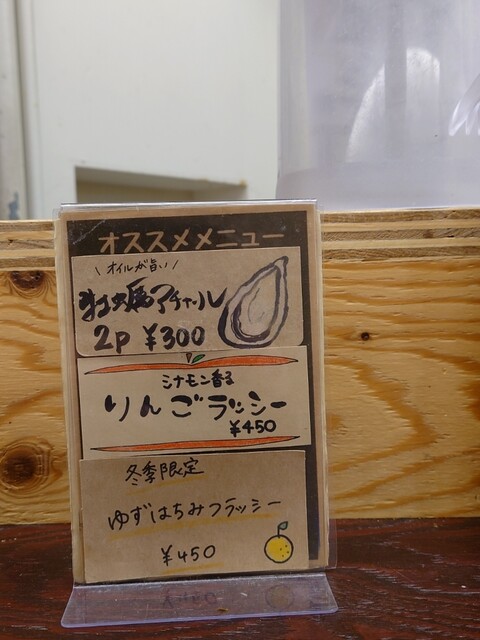 オススメメニュー
\オイルが旨い/
牡蠣アチャール
2P ¥300
シナモン香る
りんごラッシー
¥450
冬季限定
ゆずはちみつラッシー
¥450